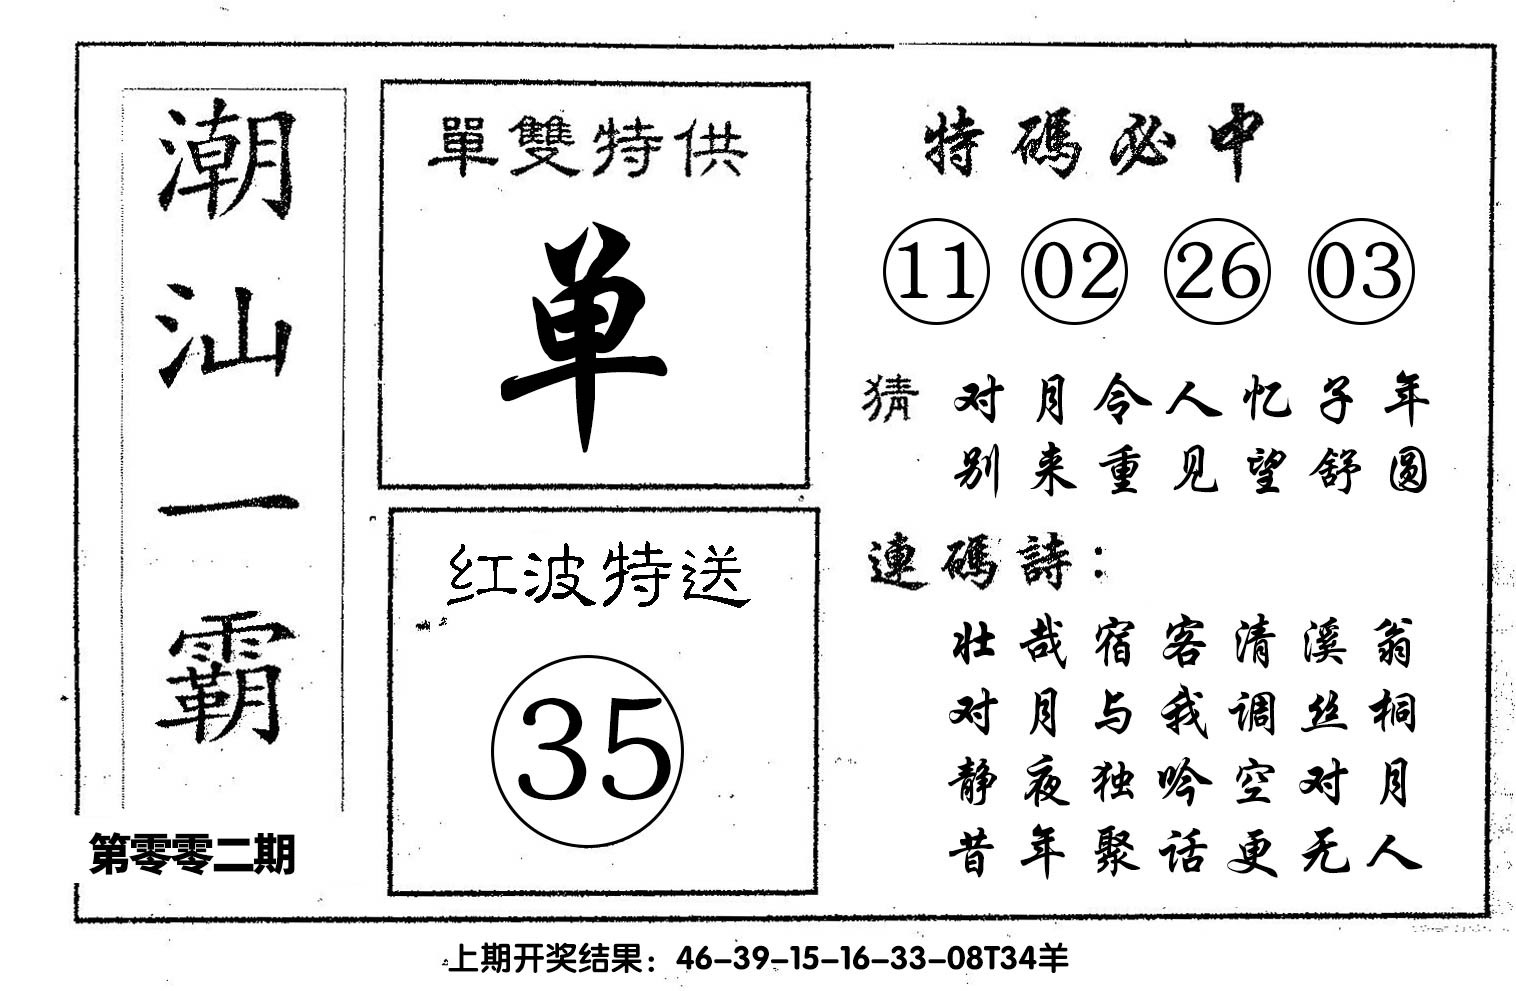 潮汕一霸
第零零二期
單雙特供
单
红波特送
35
特碼必中
11 02 26 03
猜 对月令人忆子年
别来重见望舒圆
連碼詩：
壮哉宿客清溪翁
对月与我调丝桐
静夜独吟空对月
昔年聚话更无人
上期开奖结果：46-39-15-16-33-08T34羊